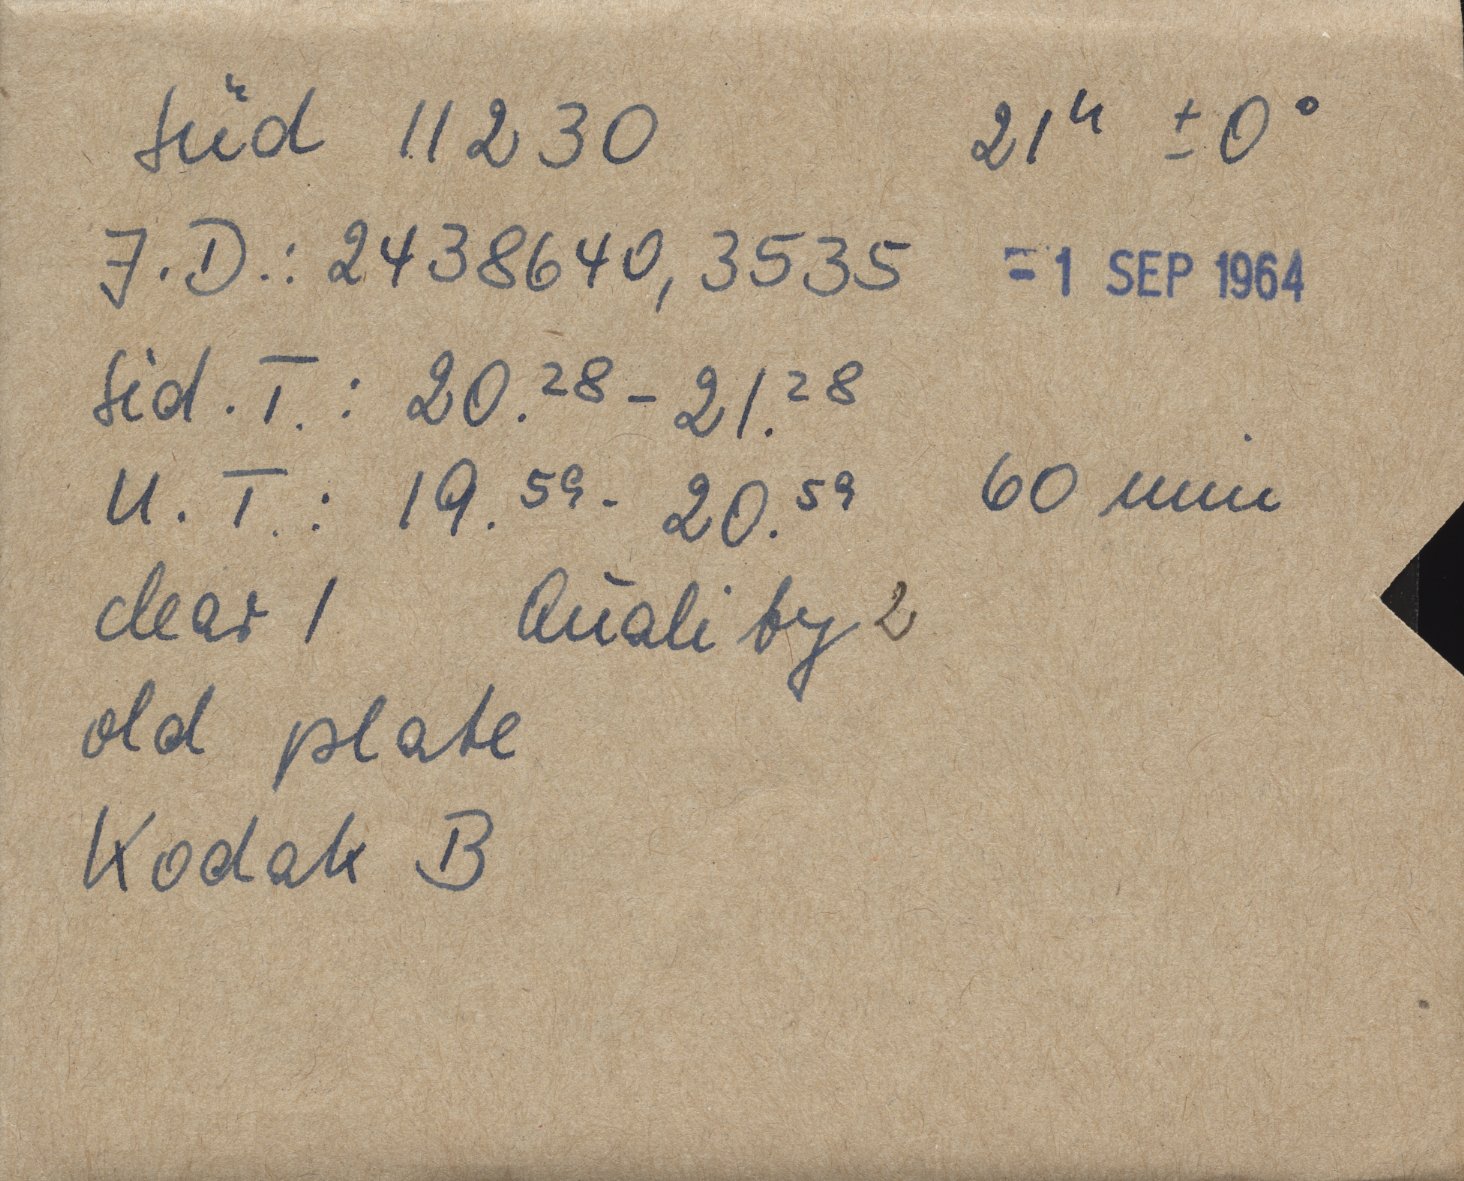 Süd 11230 21ʰ ±0°
J.D.: 2438640,3535 -1 SEP 1964
Sid. T.: 20.²⁸ - 21.²⁸
U.T.: 19.⁵⁹ - 20.⁵⁹ 60 min
clear 1 Quality 2
old plate
Kodak B